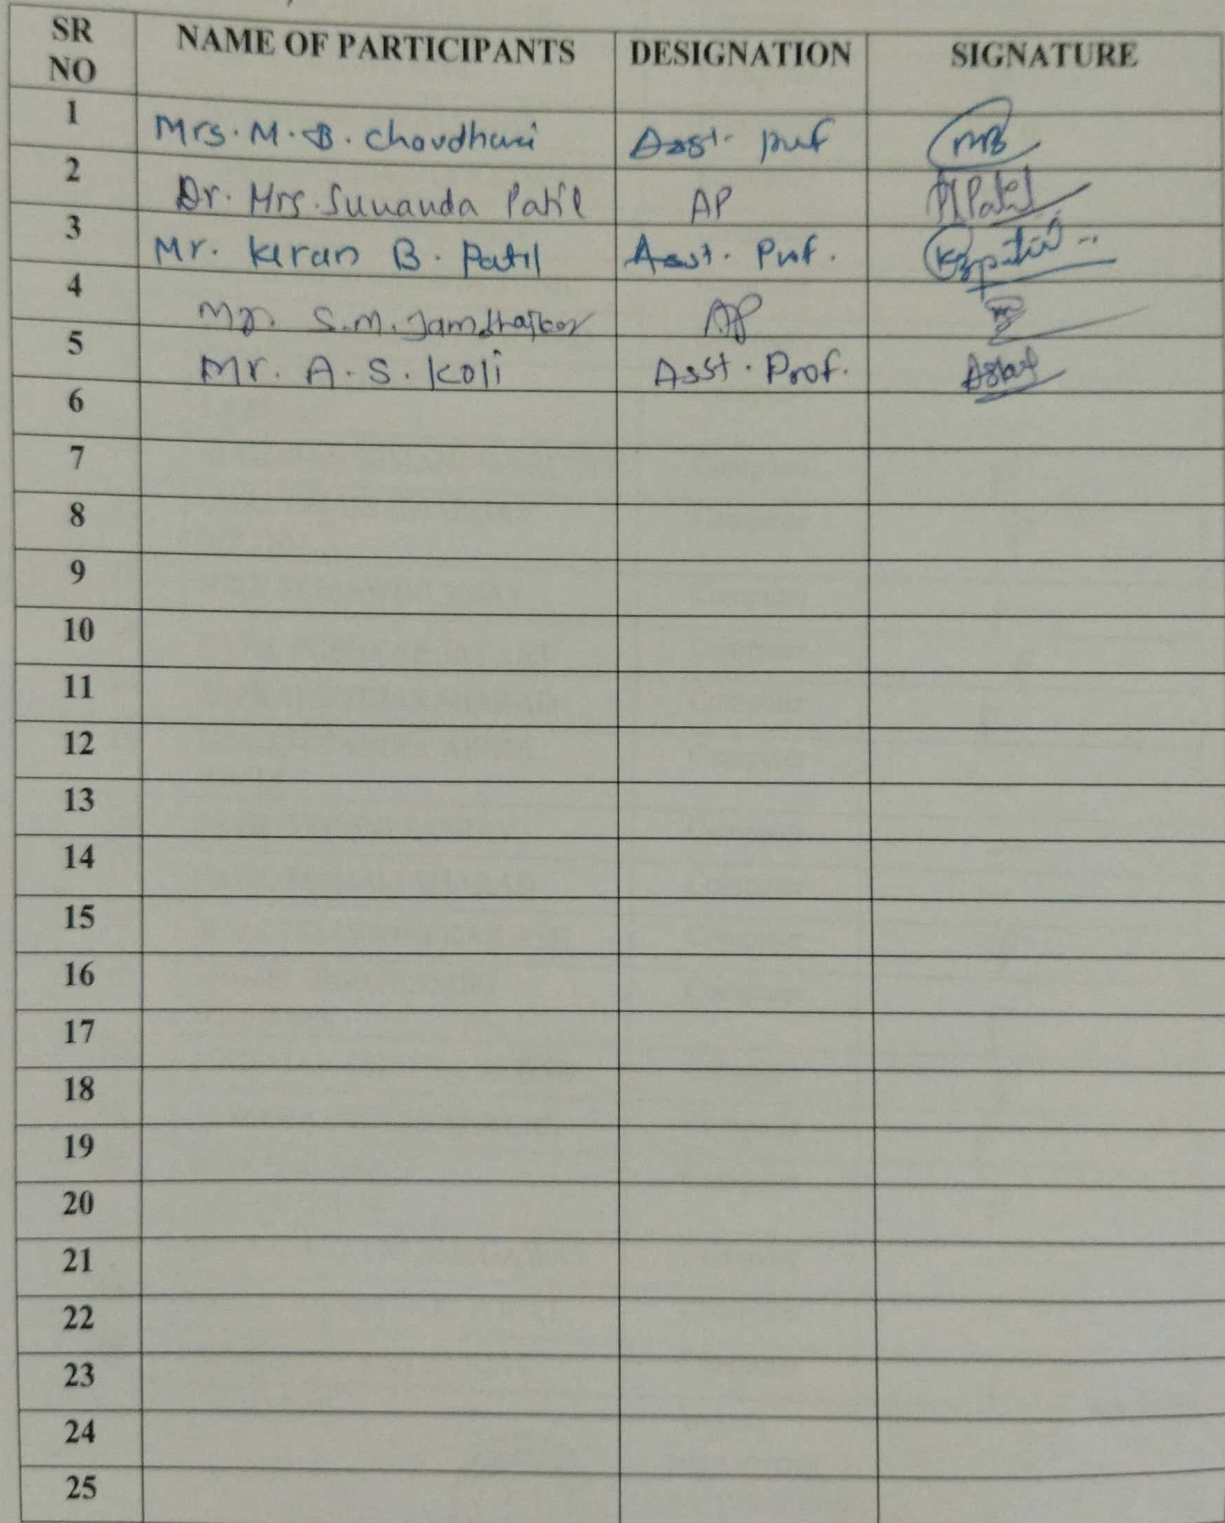 SR NO NAME OF PARTICIPANTS DESIGNATION SIGNATURE
1 Mrs. M. B. Choudhari Asst. Prof MB
2 Dr. Mrs. Sunanda Patil AP Patil
3 Mr. Kiran B. Patil Asst. Prof. KBPatil
4 S.M. AP
5 Mr. A. S. Koli Asst. Prof.
6
7
8
9
10
11
12
13
14
15
16
17
18
19
20
21
22
23
24
25